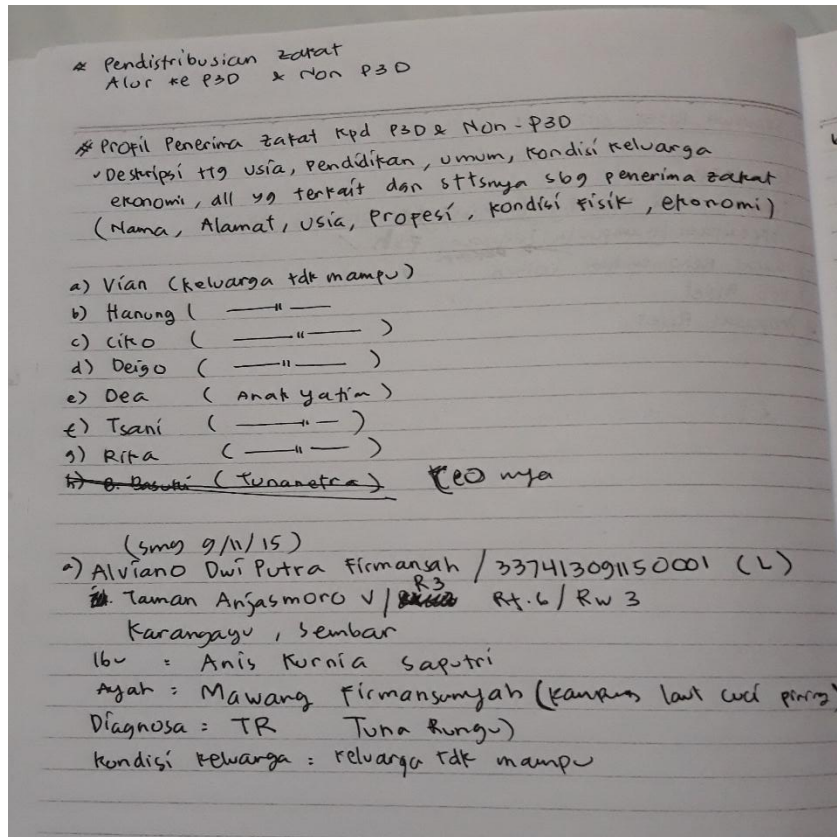 * Pendistribusian zakat
Alur ke P3D & Non P3D
* Profil Penerima zakat Kpd P3D & Non-P3D
Deskripsi ttg usia, pendidikan, umum, kondisi keluarga
ekonomi, all yg terkait dgn sttsnya sbg penerima zakat
(Nama, Alamat, usia, propesi, kondisi fisik, ekonomi)
a) Vian (keluarga tdk mampu)
b) Hanung ( —"—
c) Ciko ( —"— )
d) Deigo ( —"— )
e) Dea ( Anak yatim )
f) Tsani ( —"— )
g) Rita ( —"— )
h) B. Basuki (Tunanetra) CEO nya
(smg 9/11/15)
a) Alviano Dwi Putra Firmansah / 337413091150001 (L)
Taman Anjasmoro V / R3 Rt.6 / Rw 3
Karangayu, sembar
Ibu : Anis Kurnia Saputri
Ayah : Mawang Firmansumyah (kampung laut cuci piring)
Diagnosa : TR Tuna Rungu)
Kondisi keluarga : keluarga tdk mampu